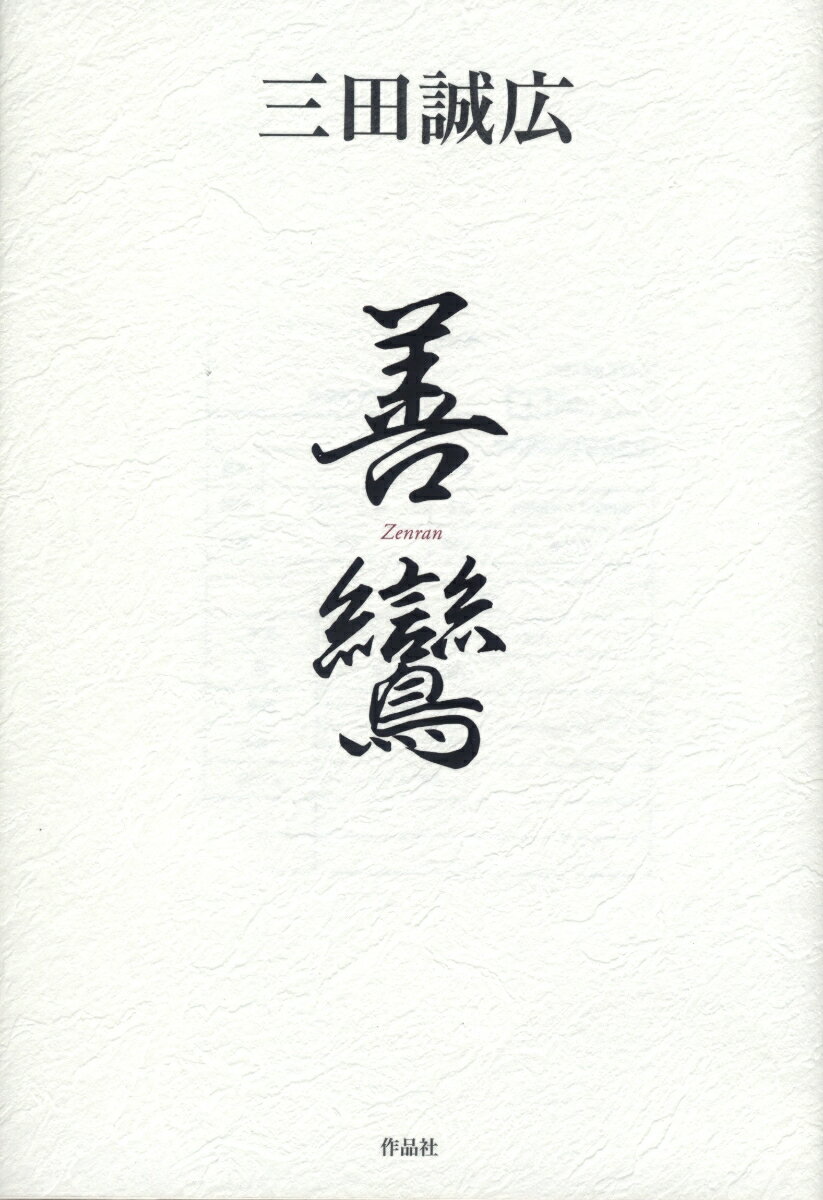 三田誠広
善
Zenran
鸞
作品社